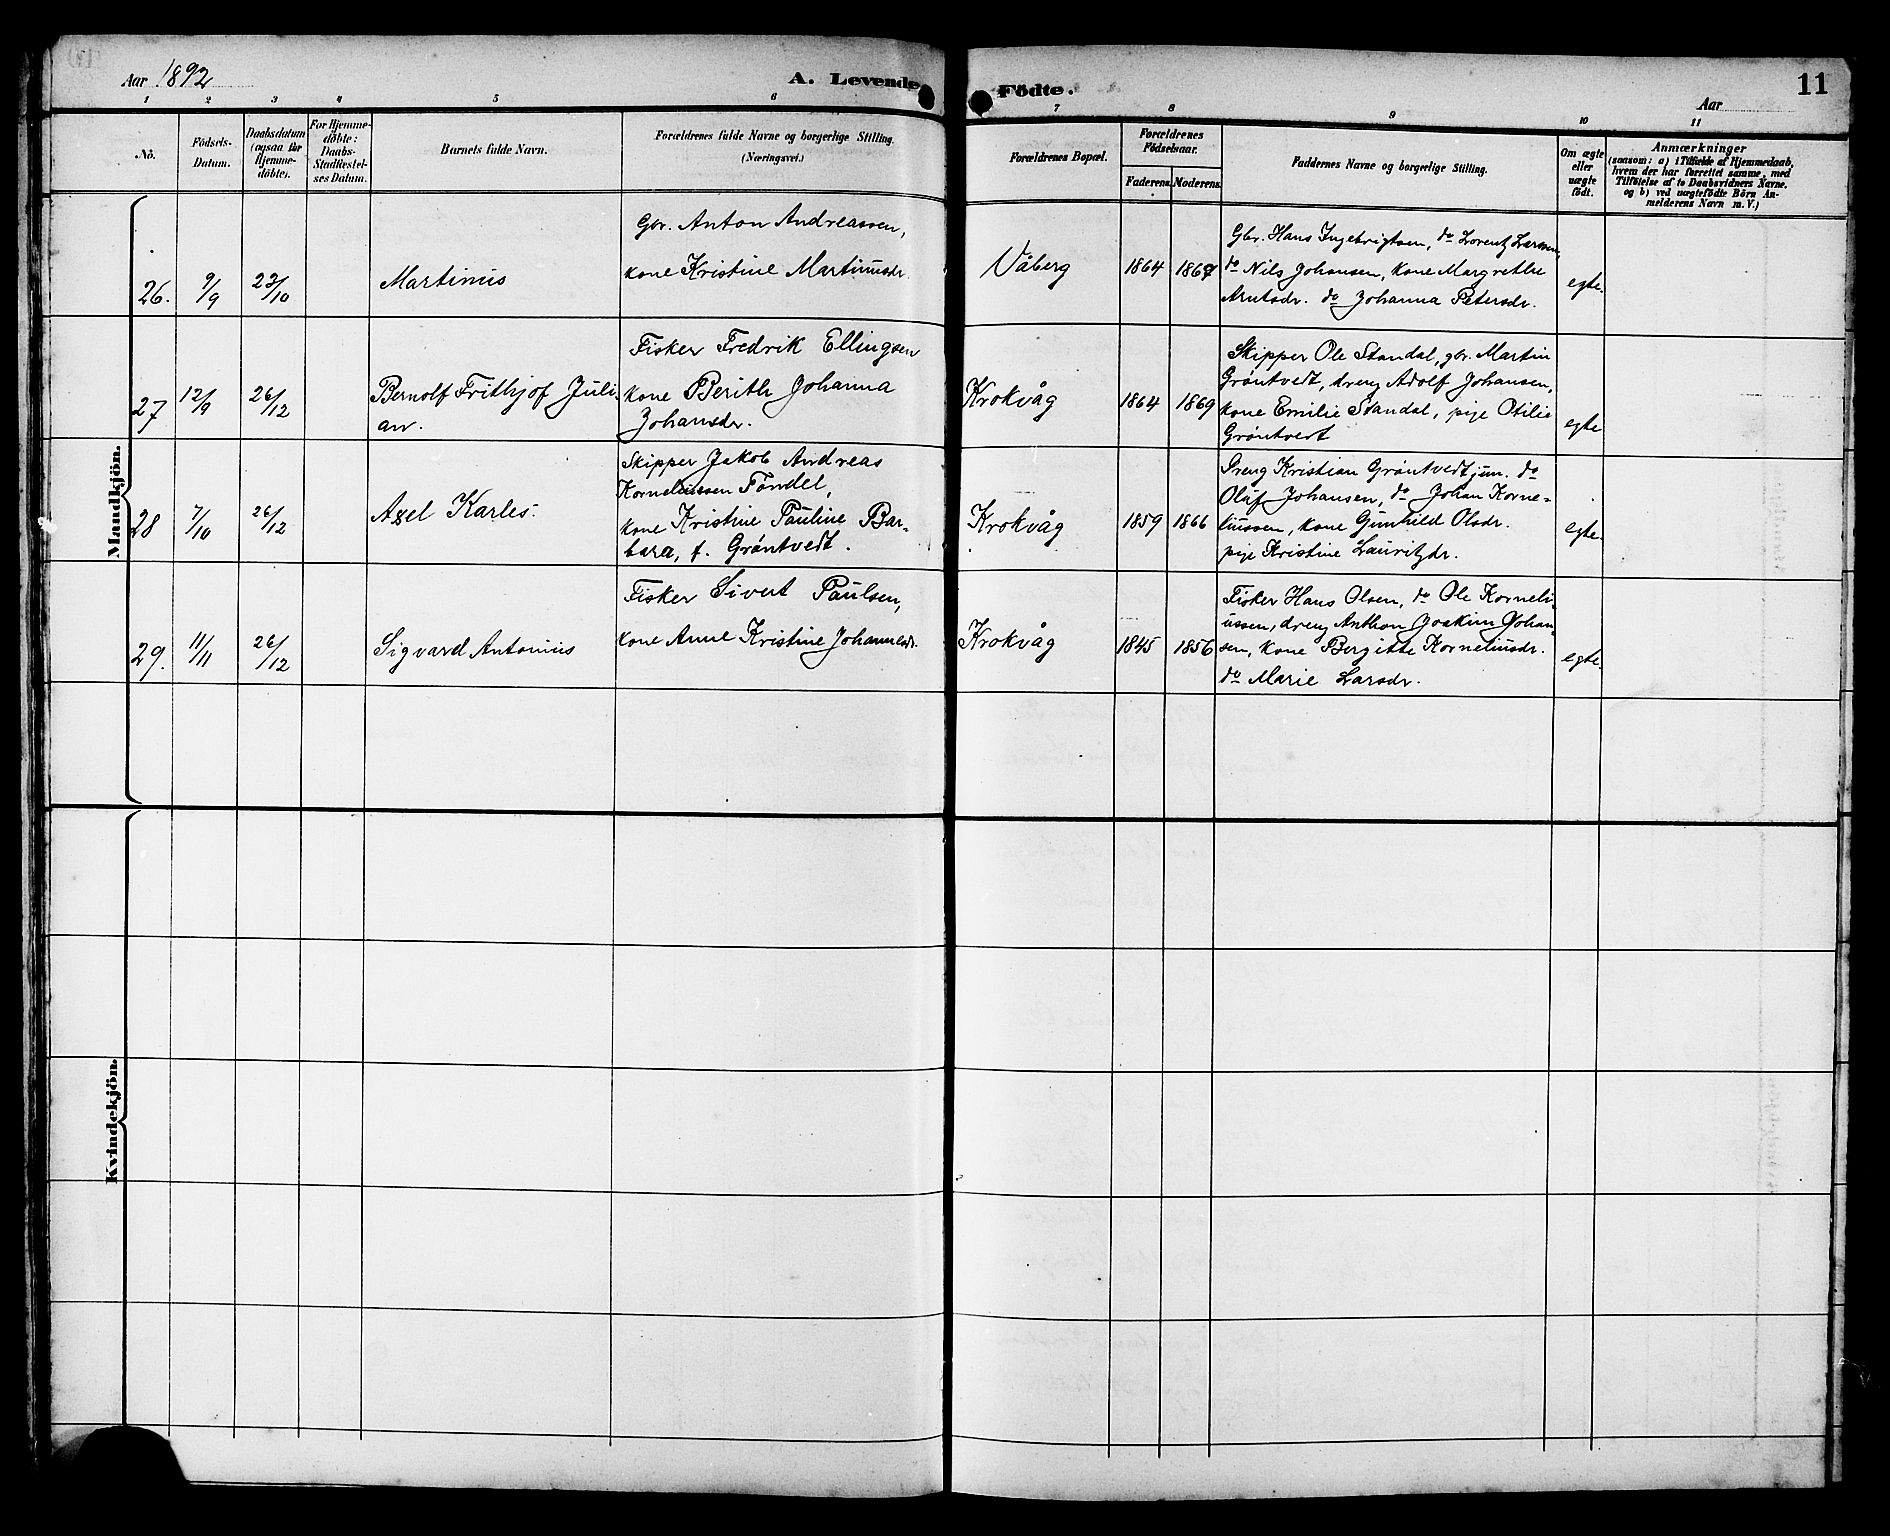 Aar 1892
A. Levende Födte.
Aar
11
1 2 3 4 5 6 7 8 9 10 11
No.
Födsels-
Datum.
Daabsdatum
(ogsaa for
Hjemme-
döbte).
For Hjemme-
döbte:
Daabs-
Stadfæstel-
ses Datum.
Barnets fulde Navn.
Forældrenes fulde Navne og borgerlige Stilling.
(Næringsvei.)
Forældrenes Bopæl.
Forældrenes
Födselsaar.
Faderens. Moderens.
Faddernes Navne og borgerlige Stilling.
Om ægte
eller
uægte
födt.
Anmærkninger
(saasom: a) i Tilfælde af Hjemmedaab,
hvem der har forrettet samme, med
Tilföielse af to Daabsvidners Navne.
og b) ved uægtefödte Börn An-
melderens Navn m. V.)
Mandkjön.
26. 9/9 23/10
Martinus
Gbr. Anton Andreassen,
kone Kristine Martinusdr.
Våberg
1864 1867
Gbr. Hans Ingebrigtsen, do Lorentz Larssen,
do Nils Johansen, kone Margrethe
Arntsdr. do Johanna Petersdr.
egte.
27 12/9 26/12
Bernolf Frithjof Juli-
an.
Fisker Fredrik Ellingsen
kone Berith Johanna
Johansdr.
Krokvåg
1864 1869
Skipper Ole Standal, gbr. Martin
Gröntvedt, dreng Adolf Johansen,
kone Emilie Standal, pige Otilie
Gröntvedt
egte
28 7/10 26/12
Axel Karles.
Skipper Jakob Andreas
Korneliussen Töndel,
kone Kristine Pauline Bar-
bara, f. Gröntvedt.
Krokvåg
1859 1866
Dreng Kristian Gröntvedt jun. do
Oluf Johansen, do Johan Korne-
liussen, kone Gunhild Olsdr.
pige Kristine Lauritzdr.
egte.
29. 11/11 26/12
Sigvard Antonius
Fisker Sivert Paulsen,
kone Anne Kristine Johannesdr.
Krokvåg
1845 1856
Fisker Hans Olsen, do Ole Korneli-
ussen, dreng Anthon Joakim Johan-
sen, kone Bergitte Korneliusdr.
do Marie Larsdr.
egte.
Kvindekjön.